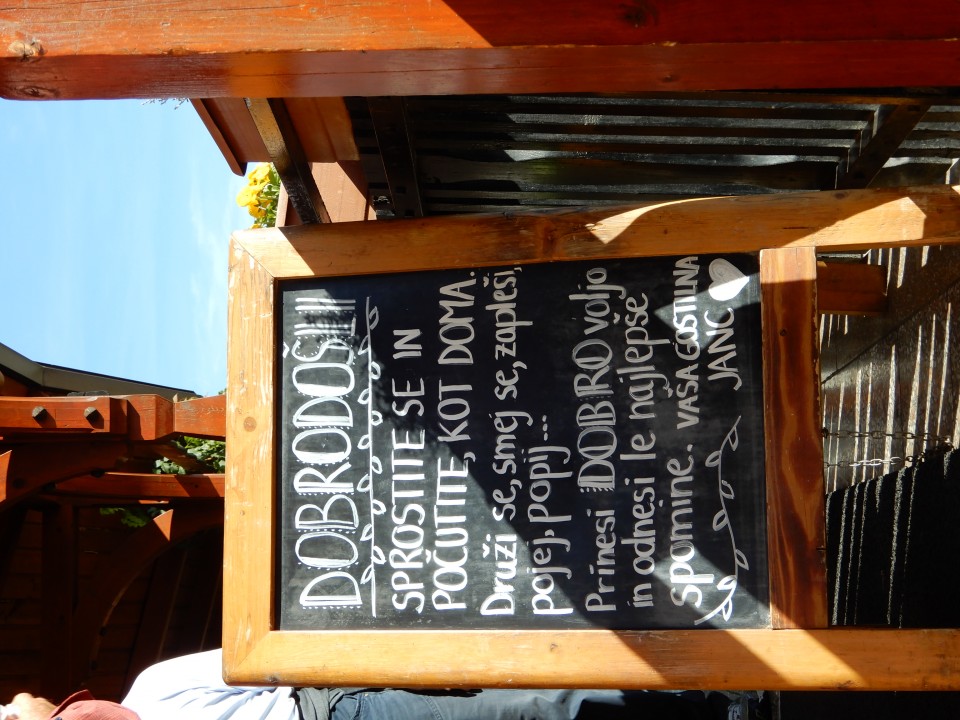 DOBRODOŠLI!
SPROSTITE SE IN
POČUTITE, KOT DOMA.
Druži se, smej se, zapleši,
pojej, popij...
Prinesi DOBRO voljo
in odnesi le najlepše
spomine. VAŠA GOSTILNA
JANC